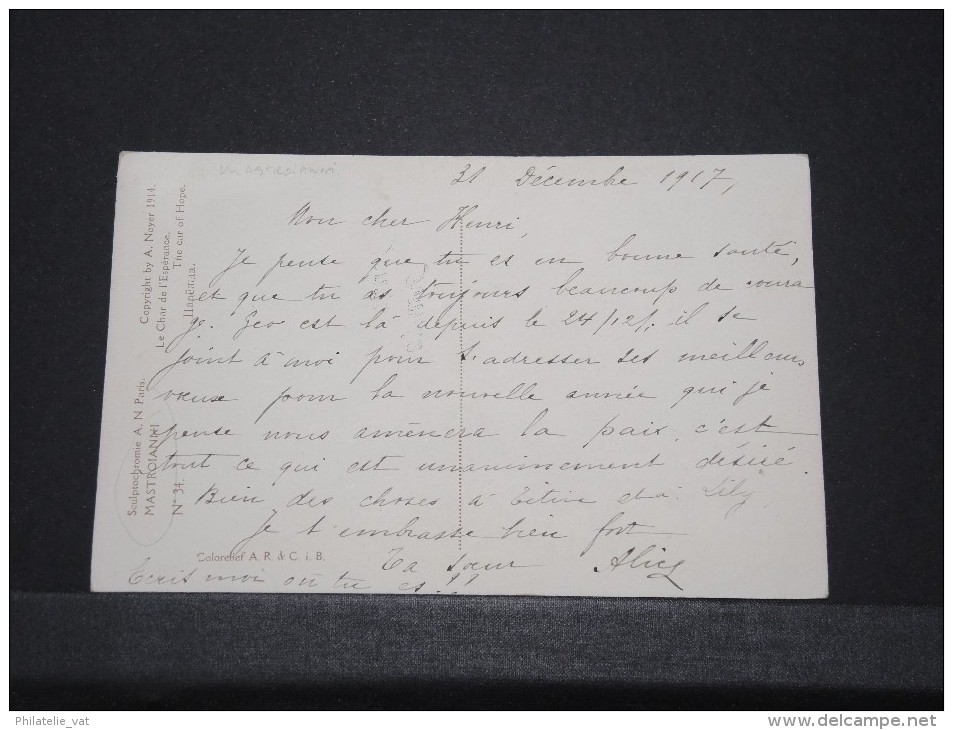 MASTROIANNI
31 Décembre 1917,
Mon cher Henri,
Je pense que tu es en bonne santé,
et que tu as toujours beaucoup de coura
ge. Geo est là depuis le 24/12/. il se
joint à moi pour t'adresser ses meilleurs
vœux pour la nouvelle année qui je
pense nous amènera la paix, c'est
tout ce qui est unanimement désiré.
Bien des choses à Titine et à Lily
Je t'embrasse bien fort
Ta sœur Alice
Ecris moi où tu es!!
Sculptochromie A. N Paris.
MASTROIANNI
N° 34.
Copyright by A. Noyer 1914.
Le Char de l'Espérance.
The car of Hope.
Colorelief A. R. & C. i. B.
Philatelie_vat
www.delcampe.net